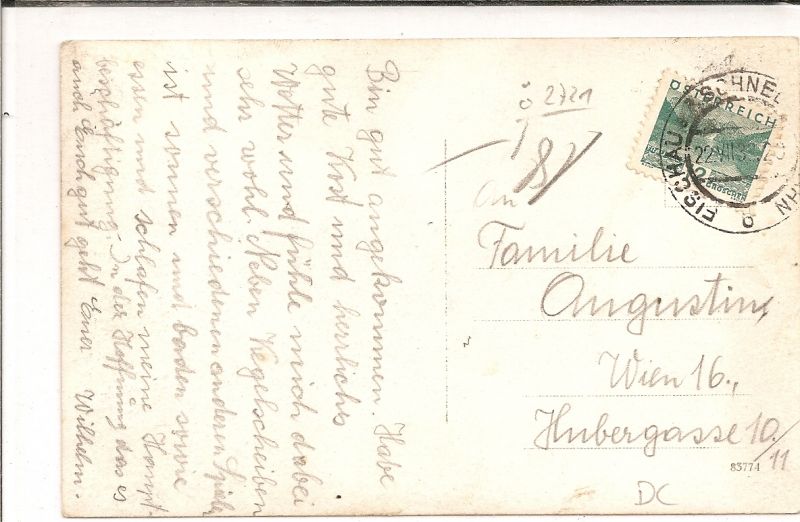 Bin gut angekommen. Habe
gute Kost und herrliches
Wetter und fühle mich dabei
sehr wohl. Neben Kegelscheiben
und verschiedenen anderen Spiele
ist sonnen und baden sowie
essen und schlafen meine Haupt-
beschäftigung. In der Hoffnung das es
auch Euch gut geht Euer Wilhelm.
2721
ÖSTERREICH
GROSCHEN
EISCHAU
SCHNE
22.VIII
b
An
Familie
Augustin
Wien 16.,
Hubergasse 10/11
83774
DC